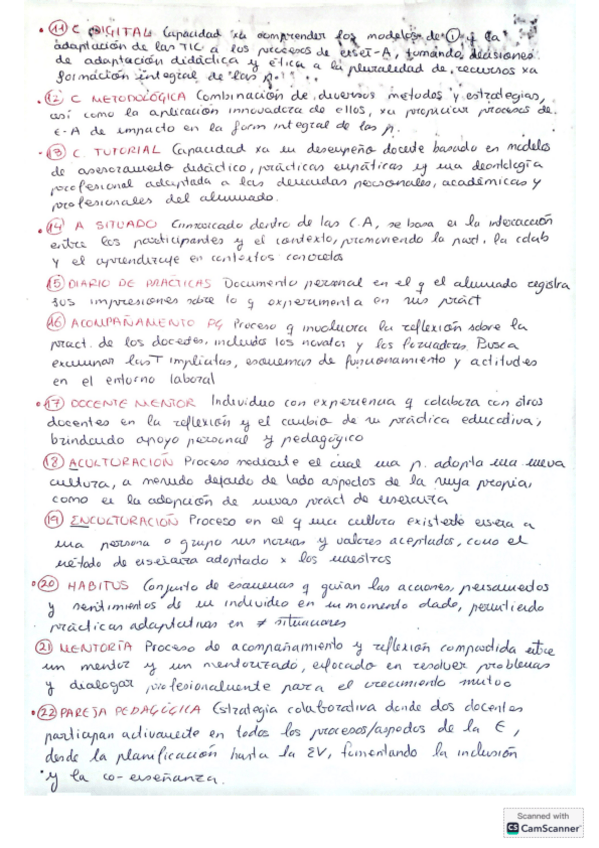 • ⑪ C DIGITAL Capacidad xa comprender los modelos de ① y la
adaptación de las TIC a los procesos de enseñ-A, tomando decisiones
de adaptación didáctica y ética a la pluralidad de recursos xa
formación integral de las p.
• ⑫ C METODOLÓGICA Combinación de diversos métodos y estrategias,
así como la aplicación innovadora de ellos, xa propiciar procesos de
E-A de impacto en la form integral de las p.
• ⑬ C. TUTORIAL Capacidad xa su desempeño docente basado en modelos
de asesoramiento didáctico, prácticas empáticas y una deontología
profesional adaptada a las demandas personales, académicas y
profesionales del alumnado.
• ⑭ A SITUADO Enmarcado dentro de las C.A, se basa en la interacción
entre los participantes y el contexto, promoviendo la part. la colab
y el aprendizaje en contextos concretos
⑮ DIARIO DE PRÁCTICAS Documento personal en el q el alumnado registra
sus impresiones sobre lo q experimenta en sus práct
⑯ ACOMPAÑAMIENTO PG Proceso q involucra la reflexión sobre la
pract. de los docentes, incluido los novatos y los formadores. Busca
examinar las T implícitas, esquemas de funcionamiento y actitudes
en el entorno laboral
• ⑰ DOCENTE MENTOR Individuo con experiencia q colabora con otros
docentes en la reflexión y el cambio de su práctica educativa,
brindando apoyo personal y pedagógico
⑱ ACULTURACIÓN Proceso mediante el cual una p. adopta una nueva
cultura, a menudo dejando de lado aspectos de la suya propia,
como en la adopción de nuevas práct de enseñanza
⑲ ENCULTURACIÓN Proceso en el q una cultura existente enseña a
una persona o grupo sus normas y valores aceptados, como el
método de enseñanza adoptado x los maestros
• ⑳ HABITUS Conjunto de esquemas q guían las acciones, pensamientos
y sentimientos de un individuo en un momento dado, permitiendo
prácticas adaptativas en ≠ situaciones
㉑ MENTORÍA Proceso de acompañamiento y reflexión compartida entre
un mentor y un mentorizado, enfocado en resolver problemas
y dialogar profesionalmente para el crecimiento mutuo
• ㉒ PAREJA PEDAGÓGICA Estrategia colaborativa donde dos docentes
participan activamente en todos los procesos/aspectos de la E,
desde la planificación hasta la EV, fomentando la inclusión
y la co-enseñanza.
Scanned with
CS CamScanner